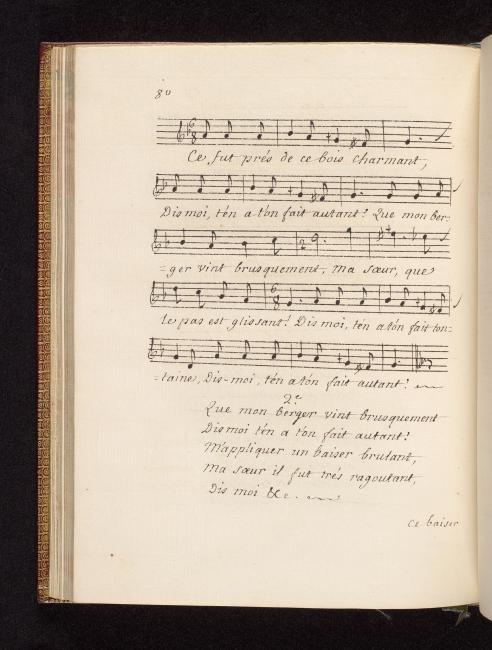 80
Ce fut prés de ce bois charmant,
Dis moi, t'en a t'on fait autant? Que mon ber-
-ger vint brusquement, ma sœur, que
le pas est glissant! Dis moi, t'en a t'on fait ton-
-taine, Dis-moi, t'en a t'on fait autant?
2.e
Que mon berger vint brusquement
Dis moi t'en a t'on fait autant?
M'appliquer un baiser brulant,
Ma sœur il fut trés ragoutant,
Dis moi &c.
Ce baiser